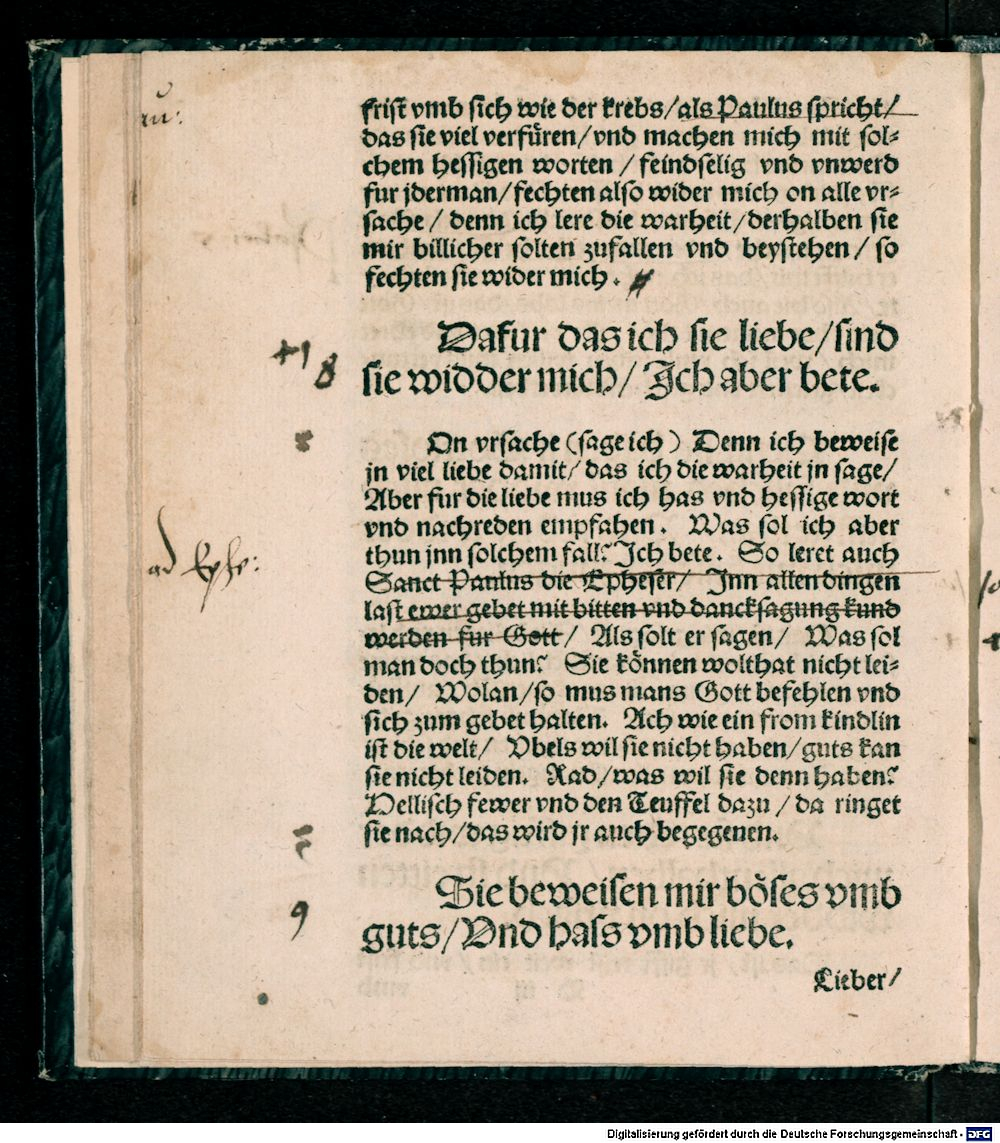 frist vmb sich wie der krebs/als Paulus spricht/
das sie viel verfüren/vnd machen mich mit sol⸗
chem hessigen worten / feindselig vnd vnwerd
fur jderman/fechten also wider mich on alle vr⸗
sache/ denn ich lere die warheit/derhalben sie
mir billicher solten zufallen vnd beystehen/ so
fechten sie wider mich.
Dafur das ich sie liebe/sind
sie widder mich/ Ich aber bete.
+ 8
On vrsache (sage ich) Denn ich beweise
jn viel liebe damit/ das ich die warheit jn sage/
Aber fur die liebe mus ich has vnd hessige wort
vnd nachreden empfahen. Was sol ich aber
thun jnn solchem fall? Ich bete. So leret auch
ad Ephe:
Sanct Paulus die Epheser/ Inn allen dingen
last ewer gebet mit bitten vnd dancksagung kund
werden fur Gott/ Als solt er sagen/ Was sol
man doch thun? Sie können wolthat nicht lei⸗
den/ Wolan/so mus mans Gott befehlen vnd
sich zum gebet halten. Ach wie ein from kindlin
ist die welt/ Vbels wil sie nicht haben/guts kan
sie nicht leiden. Rad/was wil sie denn haben?
Hellisch fewer vnd den Teuffel dazu /da ringet
sie nach/das wird jr auch begegenen.
Sie beweisen mir böses vmb
9
guts/Vnd hass vmb liebe.
Lieber/
Digitalisierung gefördert durch die Deutsche Forschungsgemeinschaft - DFG